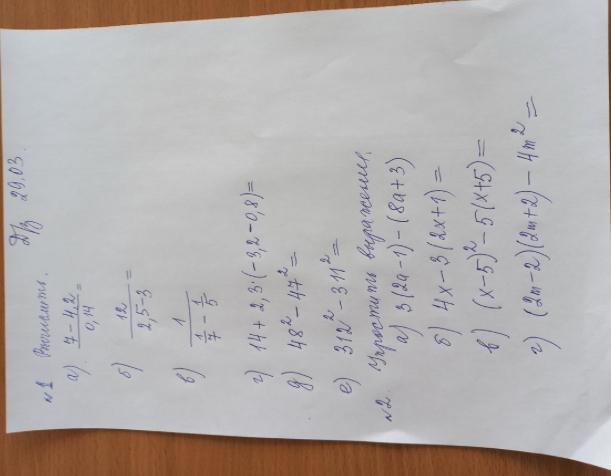 ДЗ 29.03.
№1 Вычислить.
а) (7-4,2)/0,14 =
б) 12/(2,5-3) =
в) 1/(1/7 - 1/5)
г) 14+2,3·(-3,2-0,8)=
д) 48²-47²=
е) 312²-311²=
№2. Упростить выражения.
а) 3(2a-1)-(8a+3)
б) 4x-3(2x+1)=
в) (x-5)²-5(x+5)=
г) (2m-2)(2m+2)-4m²=